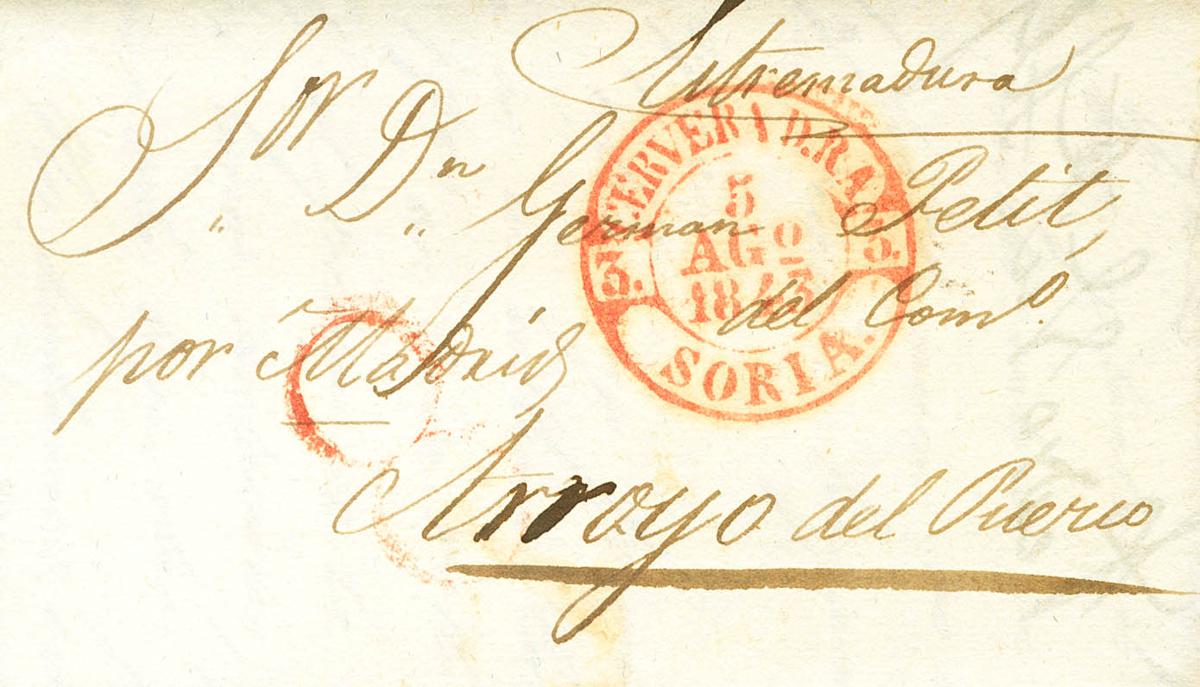 Estremadura
Sor Dn German Petit,
del Como.
por Madrid
Arroyo del Puerco
CERVERA D.R.A.
3. 3.
5
AGO
1843
SORIA.